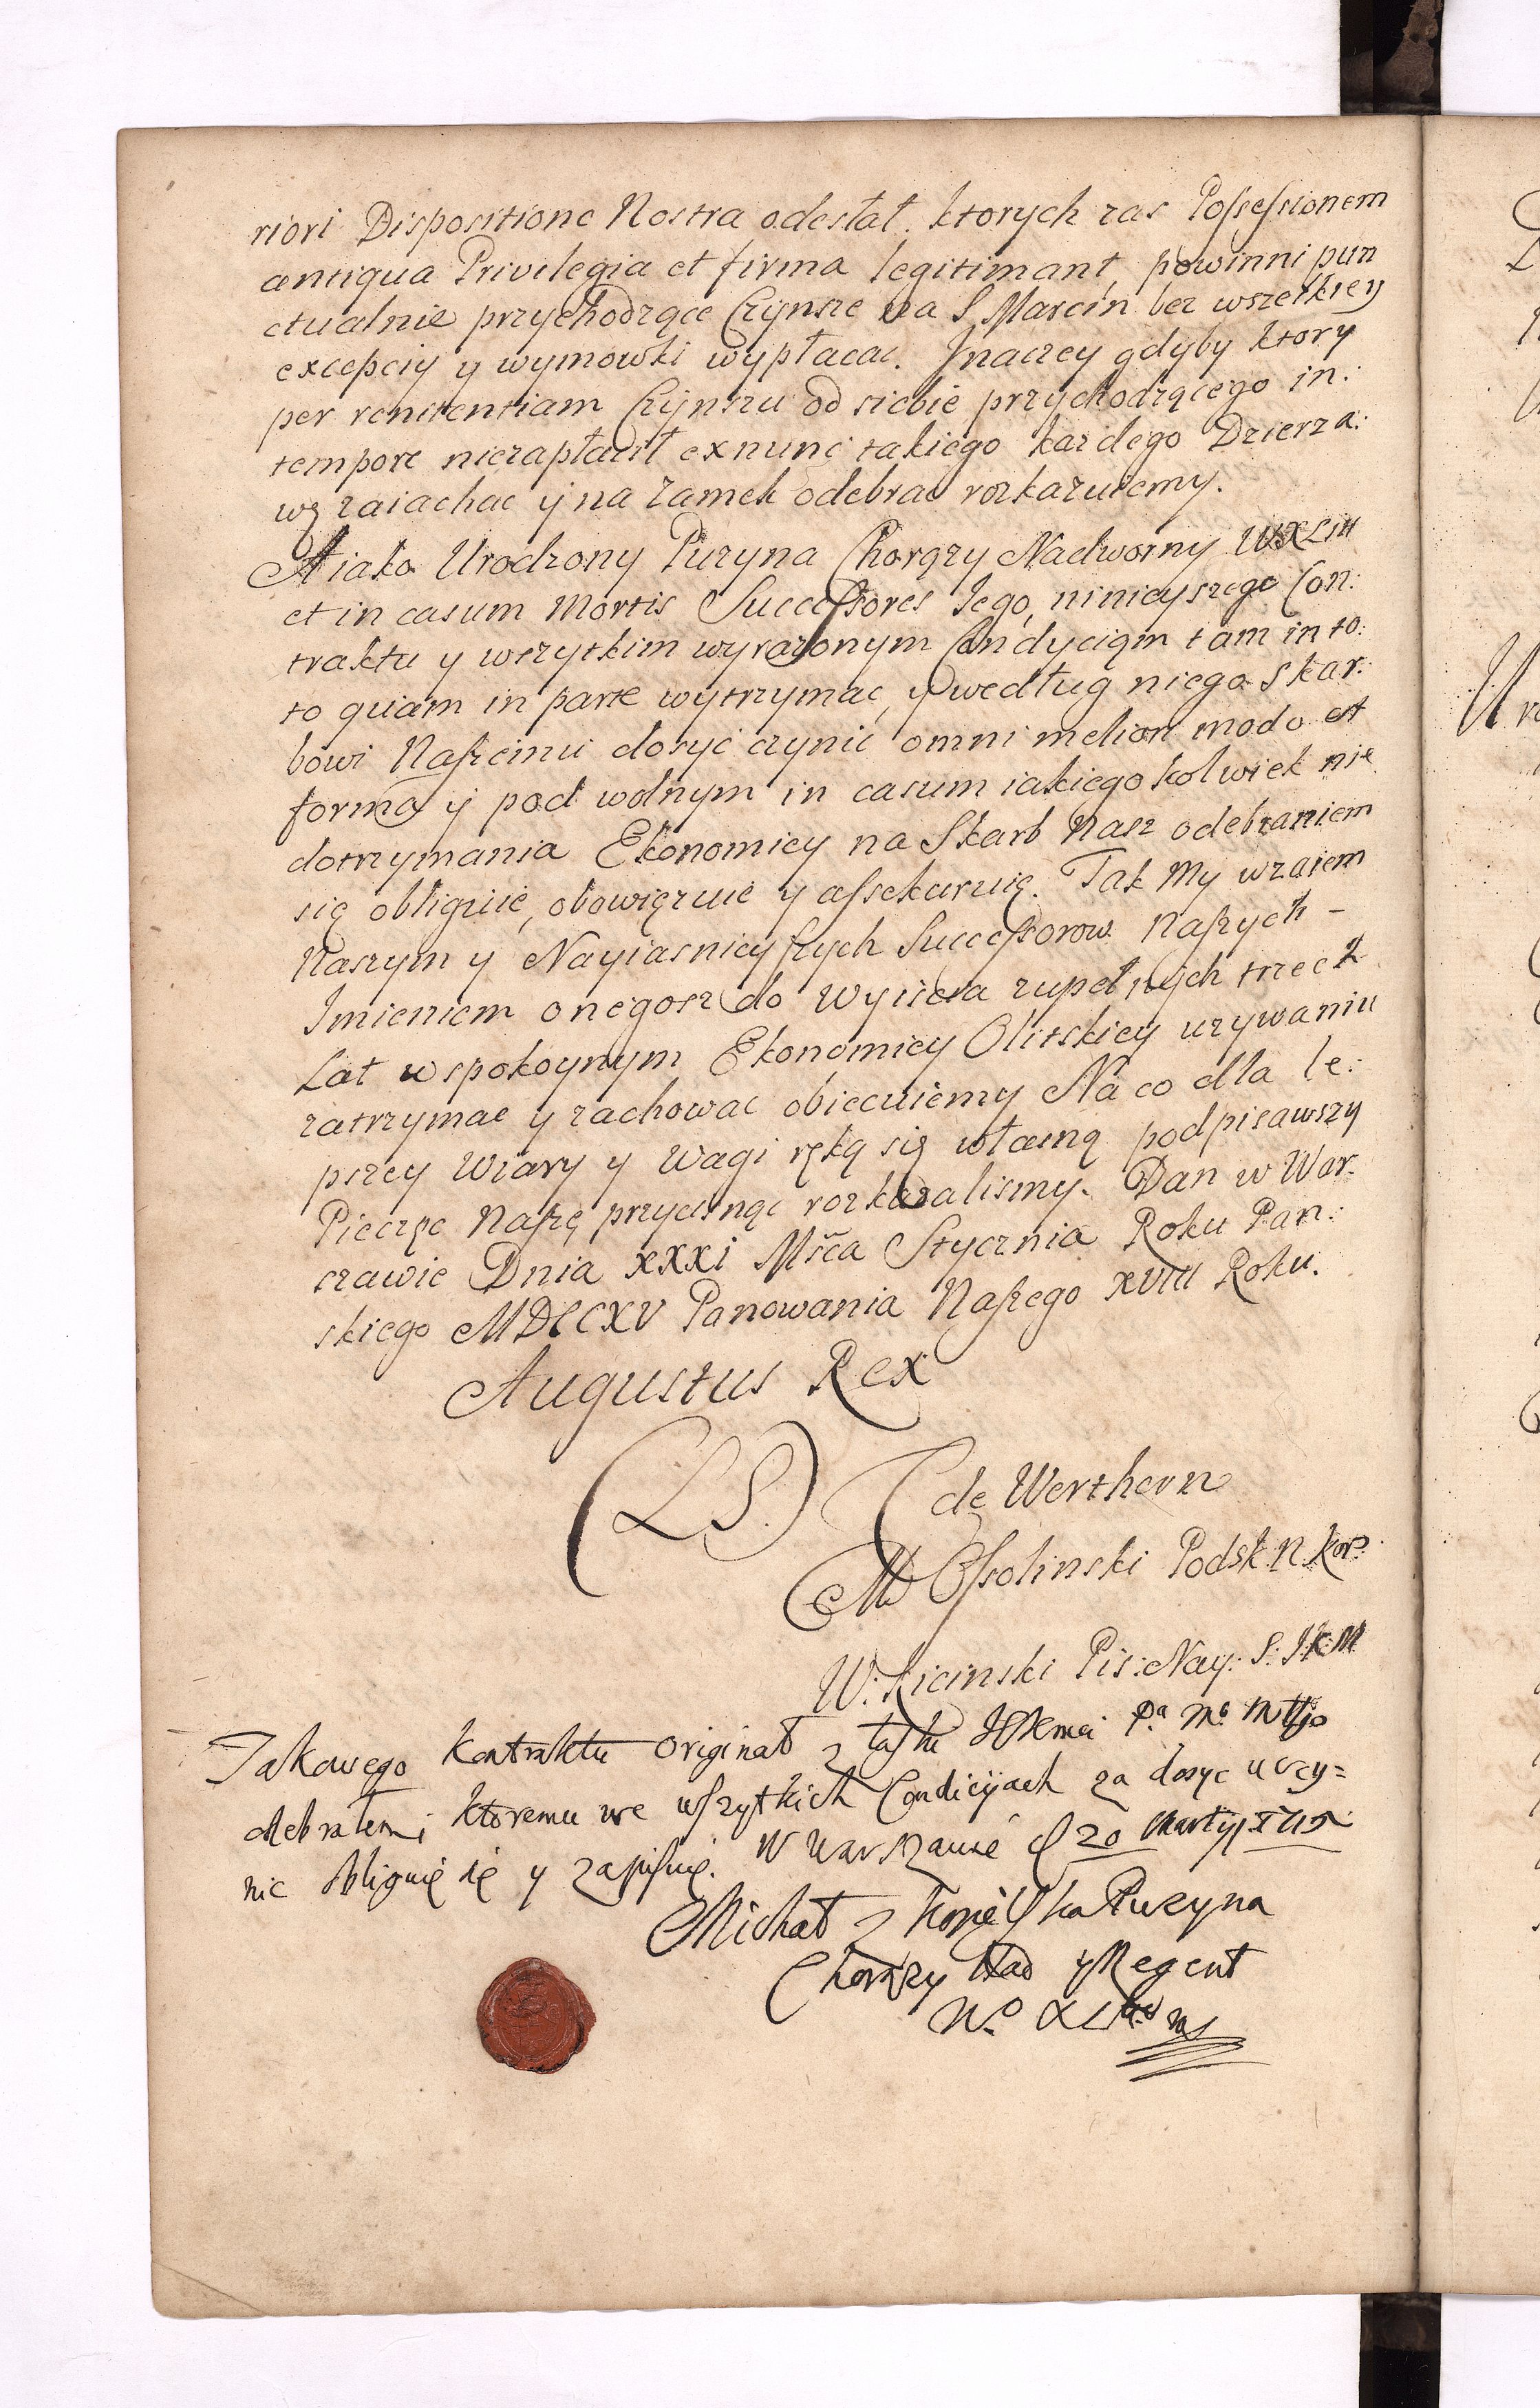 riori Dispositione Nostra odesłał. ktorych zas Possessionem
antiqua Privilegia et firma legitimant, powinni pun
ctualnie przychodzące Czynsze na S Marcin bez wszelkiey
excepciy y wymowki wypłacac. Jnaczey gdyby ktory
per renitentiam Czynszu od siebie przychodzącego in:
tempore niezapłacił exnunc takiego kazdego Dzierza:
wę zaiachac y na Zamek odebrac rozkazuiemy.
A iako Urodzony Puzyna Chorązy Nadworny WXLitt
et in casum Mortis Successores Iego, ninieyszego Con:
traktu y wszytkim wyrazonym Condyciom tam in to:
to quam in parte wytrzymac, y według niego Skar:
bowi Naszemu dosyć czynic omni meliori modo et
forma y pod wolnym in casum iakiegokolwiek nie
dotrzymania Ekonomiey na Skarb Nasz odebraniem
się obliguie, obowięzuie y assekuruię. Tak My wzaiem
Naszym y Nayiasnieyszych Successorow Naszych -
Jmieniem onegosz do Wyiscia zupełnych trzech
Lat w spokoynym Ekonomiey Olitskiey uzywaniu
zatrzymac y zachowac obiecuiemy Na co dla le:
pszey Wiary y Wagi ręką się własną podpisawszy
Pieczęc Naszę przycisnąc rozkazalismy. Dan w War:
szawie Dnia XXXI Msca Stycznia Roku Pan:
skiego MDCCXV Panowania Naszego XVIII Roku.
Augustus Rex
(LS.)
C de Werthern
M Ossolinski Podsk. N. Kor.
W. Kicinski Pis: Nay: S: JKM
Takowego Kontraktu originał z łaski JKMci Pa Mo Mttgo
odebrałem, ktoremu we wszytkich Condicijach za dosyc uczy=
nic obliguię się y zapisuię. W Warszawie d 20 Martij 1715
Michał z Kozielska Puzyna
Chorązy Nad y Regent